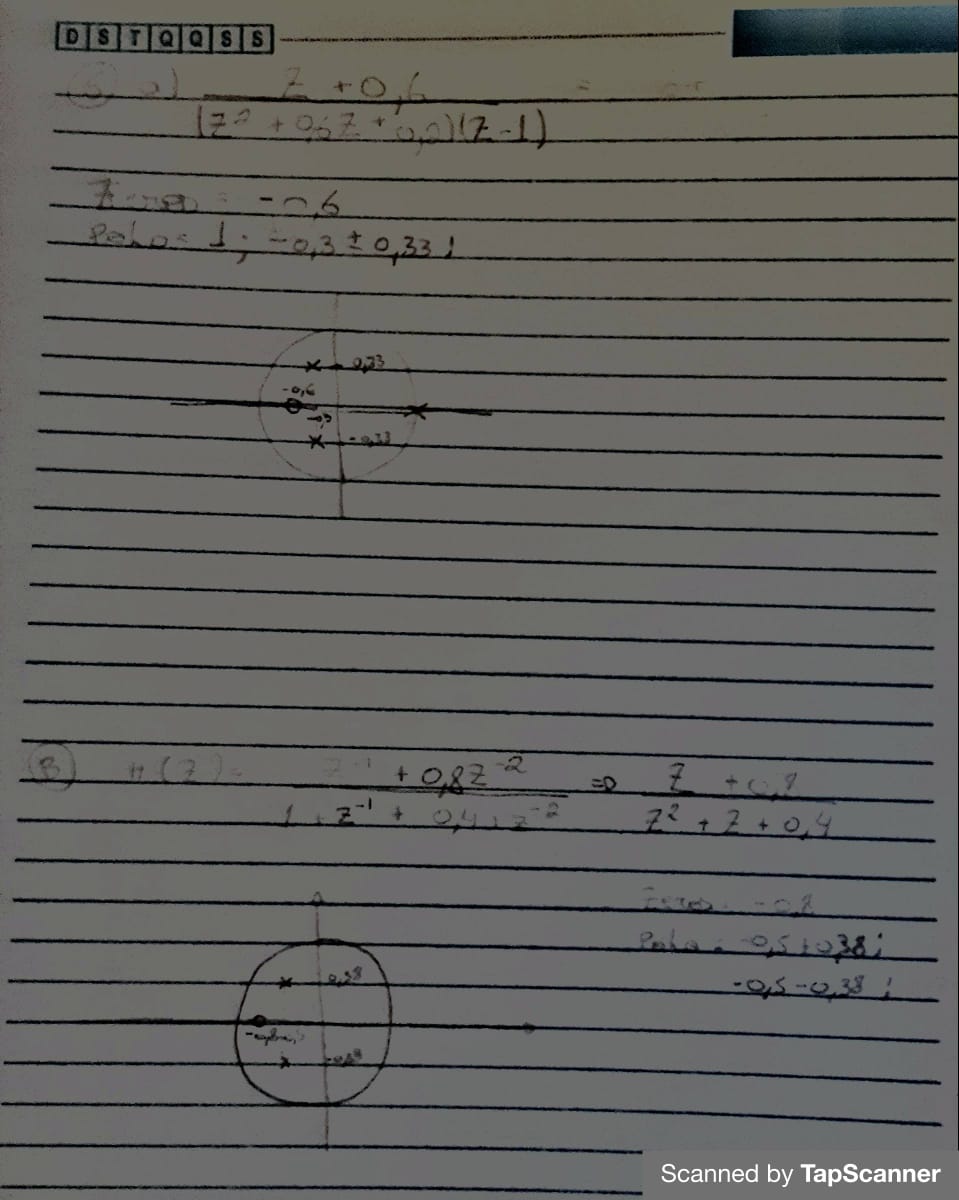 D S T Q Q S S
a) Z + 0,6
(Z² + 0,6Z + 0,2)(Z - 1)
= -0,6
Polo = 1; -0,3 ± 0,33 j
0,33
-0,6
-0,33
B) H(Z) = Z⁻¹ + 0,8Z⁻² => Z + 0,8
1 + Z⁻¹ + 0,4 Z⁻² Z² + Z + 0,4
-0,8
Polo: -0,5 + 0,38 j
-0,5 - 0,38 j
0,38
-0,38
Scanned by TapScanner